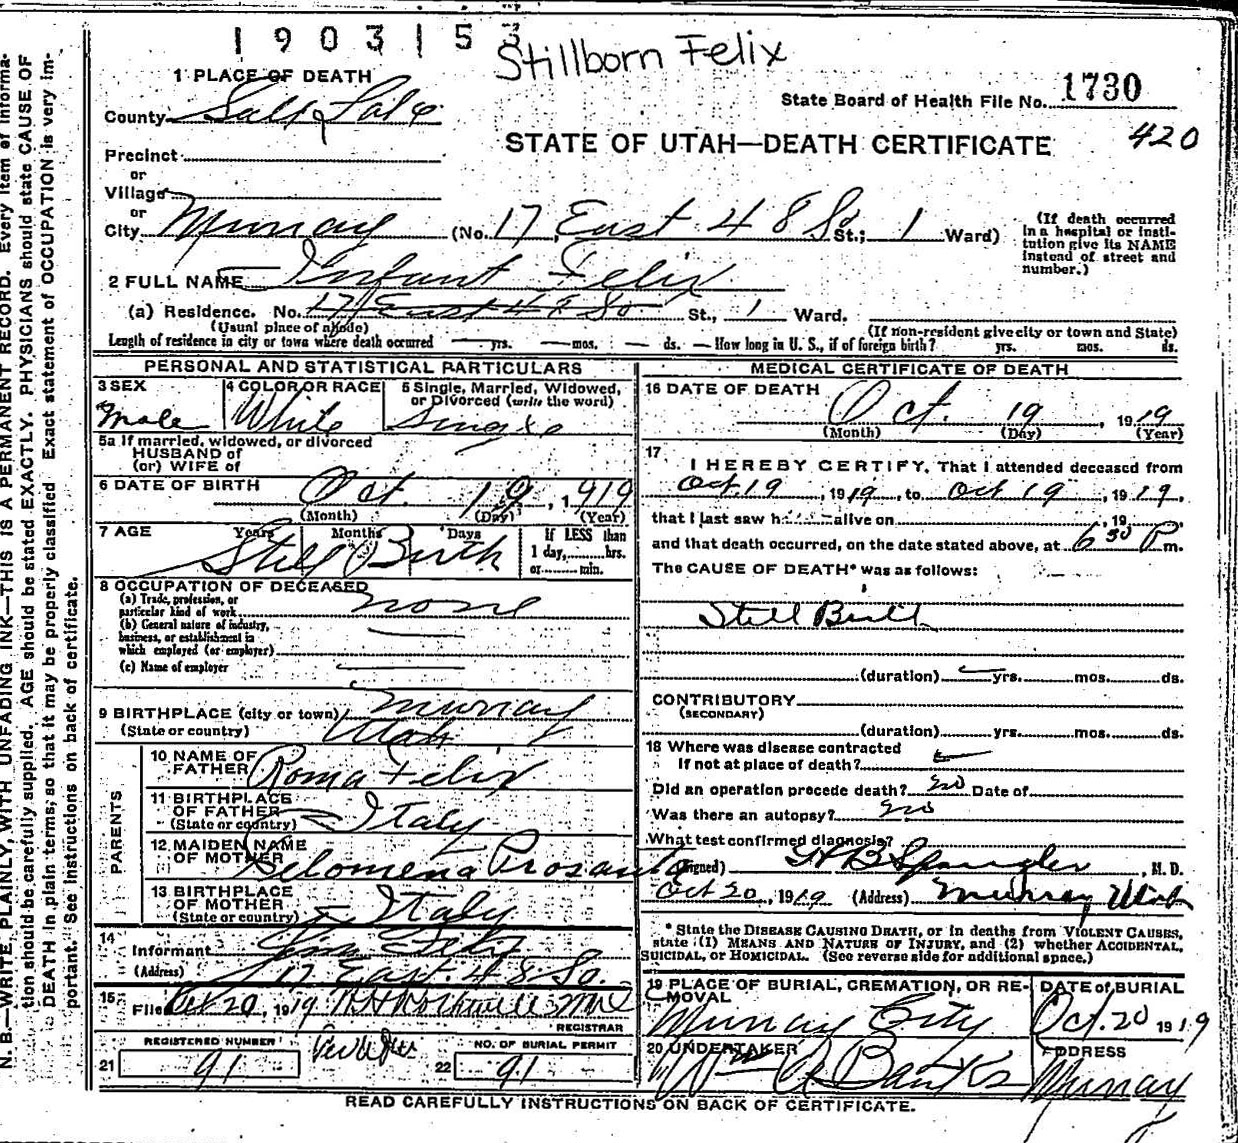 1903153
Stillborn Felix
1 PLACE OF DEATH
State Board of Health File No. 1730
County Salt Lake
STATE OF UTAH—DEATH CERTIFICATE 420
Precinct
or
Village
or
City Murray (No. 17 East 48 So. St.; 1 Ward) (If death occurred in a hospital or institution give its NAME instead of street and number.)
2 FULL NAME Infant Felix
(a) Residence. No. 17 East 48 So. St., 1 Ward.
(Usual place of abode) (If non-resident give city or town and State)
Length of residence in city or town where death occurred — yrs. — mos. — ds. — How long in U. S., if of foreign birth? yrs. mos. ds.
PERSONAL AND STATISTICAL PARTICULARS
3 SEX Male
4 COLOR OR RACE White
5 Single, Married, Widowed, or Divorced (write the word) Single
5a If married, widowed, or divorced
HUSBAND of
(or) WIFE of
6 DATE OF BIRTH Oct. 19, 1919
(Month) (Day) (Year)
7 AGE Years Months Days If LESS than
1 day, hrs.
or min.
Still Birth
8 OCCUPATION OF DECEASED
(a) Trade, profession, or
particular kind of work none
(b) General nature of industry,
business, or establishment in
which employed (or employer)
(c) Name of employer
9 BIRTHPLACE (city or town) Murray
(State or country) Utah
PARENTS
10 NAME OF FATHER Roma Felix
11 BIRTHPLACE OF FATHER (State or country) Italy
12 MAIDEN NAME OF MOTHER Felomena Prosanto
13 BIRTHPLACE OF MOTHER (State or country) Italy
14 Informant Felix
(Address) 17 East 48 So.
15 Filed Oct 20, 1919
REGISTRAR
REGISTERED NUMBER
21 91
NO. OF BURIAL PERMIT
22 91
MEDICAL CERTIFICATE OF DEATH
16 DATE OF DEATH Oct. 19, 1919
(Month) (Day) (Year)
17 I HEREBY CERTIFY, That I attended deceased from
Oct. 19, 1919, to Oct 19, 1919,
that I last saw h alive on , 19
and that death occurred, on the date stated above, at 6 30 P m.
The CAUSE OF DEATH* was as follows:
Still Birth
(duration) yrs. mos. ds.
CONTRIBUTORY
(SECONDARY)
(duration) yrs. mos. ds.
18 Where was disease contracted
If not at place of death?
Did an operation precede death? no Date of
Was there an autopsy? no
What test confirmed diagnosis?
(Signed) H B Spangler, M. D.
Oct 20, 1919 (Address) Murray Utah
* State the DISEASE CAUSING DEATH, or in deaths from VIOLENT CAUSES,
state (1) MEANS AND NATURE OF INJURY, and (2) whether ACCIDENTAL,
SUICIDAL, or HOMICIDAL. (See reverse side for additional space.)
19 PLACE OF BURIAL, CREMATION, OR REMOVAL Murray City
DATE of BURIAL Oct. 20 1919
20 UNDERTAKER Wm A Banks
ADDRESS Murray
READ CAREFULLY INSTRUCTIONS ON BACK OF CERTIFICATE.
N. B.—WRITE PLAINLY, WITH UNFADING INK—THIS IS A PERMANENT RECORD. Every item of informa-
tion should be carefully supplied. AGE should be stated EXACTLY. PHYSICIANS should state CAUSE OF
DEATH in plain terms, so that it may be properly classified. Exact statement of OCCUPATION is very im-
portant. See instructions on back of certificate.